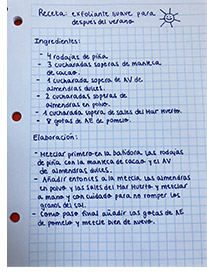 Receta: exfoliante suave para
después del verano
Ingredientes:
- 4 rodajas de piña.
- 3 cucharadas soperas de manteca
de cacao.
- 1 cucharada sopera de AV de
almendras dulces.
- 2 cucharadas soperas de
almendras en polvo.
- 1 cucharada sopera de sales del Mar Muerto.
- 8 gotas de AE de pomelo.
Elaboración:
- Mezclar primero en la batidora las rodajas
de piña con la manteca de cacao y el AV
de almendras dulces.
- Añadir entonces a la mezcla las almendras
en polvo y las sales del Mar Muerto y mezclar
a mano y con cuidado para no romper los
granos de sal.
- Como paso final añadir las gotas de AE
de pomelo y mezcle bien de nuevo.